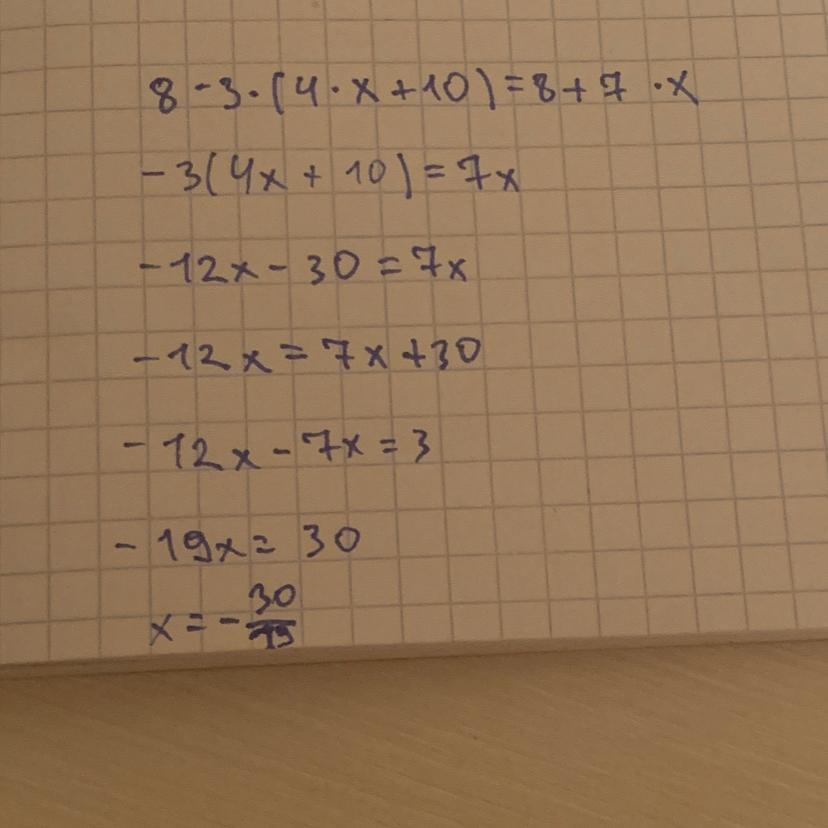 8 - 3 · (4 · x + 10) = 8 + 7 · x
-3(4x + 10) = 7x
-12x - 30 = 7x
-12x = 7x + 30
-12x - 7x = 3
-19x = 30
x = -30/19